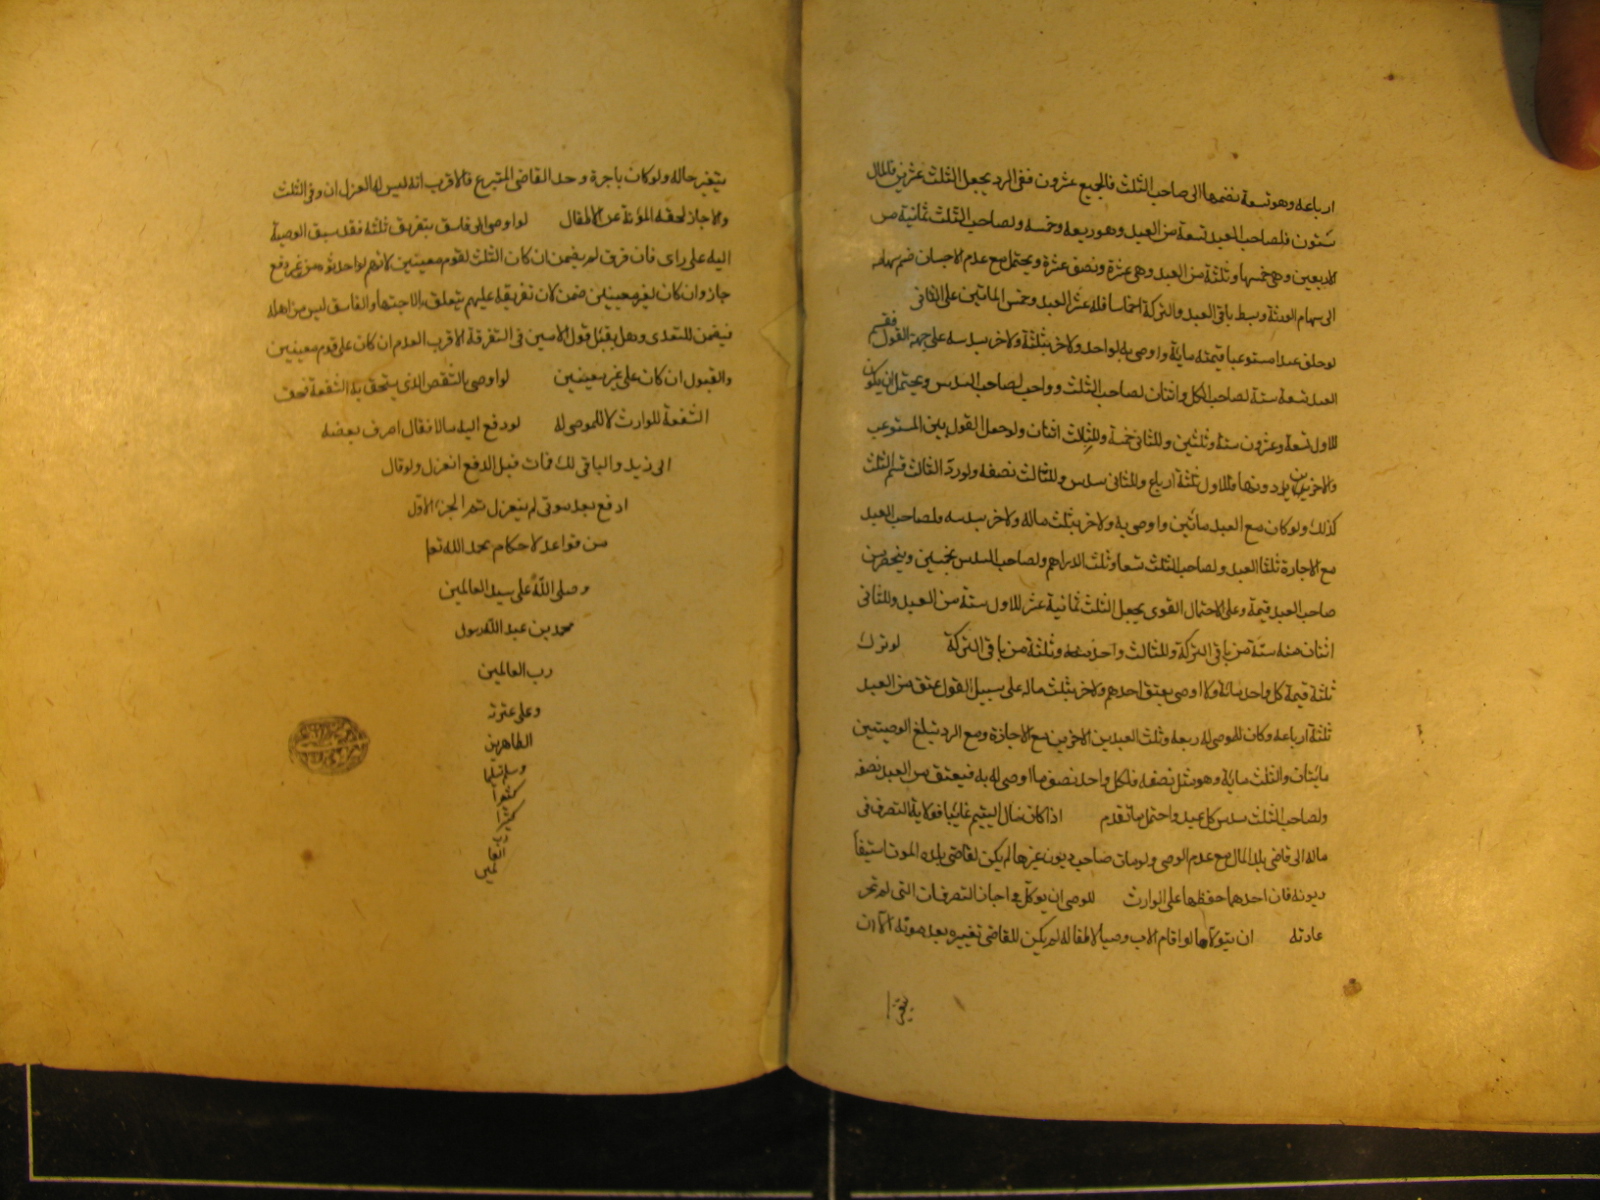 ارباعه وهو تسعة نضمها الى صاحب الثلث فالجميع عشرون ففى الرد يجعل الثلث عشرين فالمال
ستون فلصاحب العبد تسعة من العبد وهو ربعه وخمسه ولصاحب الثلث ثمانية من
الاربعين وهى خمسها وثلثة من العبد وهى عشرة ونصف عشرة ويحتمل مع عدم الاجبان ضم سهامه
الى سهام الورثة وبسط باقى العبد والتركة اخماسا فله عشر العبد وخمس الماتين على الثانى
لو خلف عبدا مستوعبا قيمته ماية واوصى به لواحد ولاخر بثلثه ولاخر بسدسه على جهة القول فقسم
العبد تسعة ستة لصاحب الكل واثنان لصاحب الثلث وواحد لصاحب السدس ويحتمل ان يكون
للاول تسعة وعشرون من ستة وثلثين وللثانى خمسة وللثالث اثنان ولو حصل القول بين المستوعب
والاخرين دونها فللاول ثلثة ارباع وللثانى سدس وللثالث نصفه ولو رد الثالث قسم الثلث
كذلك ولو كان مع العبد ماتين واوصى به ولاخر بثلث ماله ولاخر بسدسه فلصاحب العبد
مع الاجازة ثلثا العبد ولصاحب الثلث تسعا وثلث الدراهم ولصاحب السدس بخمسين وينحصر من
صاحب العبد قيمة وعلى الاحتمال القوى يجعل الثلث ثمانية عشر للاول ستة من العبد وللثانى
اثنان منه ستة من باقى التركة وللثالث واحد منه وثلثة من باقى التركة لو ترك
ثلثة قيمة كل واحد مائة ولا اوصى بعتق احدهم ولاخر بثلث ماله على سبيل القول عتق من العبد
ثلثة ارباعه وكان للموصى له ربعه وثلث العبدين الاخرين مع الاجازة ومع الرد تبلغ الوصيتين
مايتان والثلث مائة وهو مثل نصفه فلكل واحد نصف ما اوصى له به فيعتق من العبد نصفه
ولصاحب الثلث سدس كل عبد واحتمل ما تقدم اذا كان مال اليتيم غايبا فولاية التصرف فى
ماله الى قاضى بلد المال مع عدم الوصى ولو مات صاحب ديون عزها لم يكن لقاضى بلده الموت استيفا
ديونه فان احدهما حفظها على الوارث للوصى ان يوكل فى احبان التصرفات التى لم تجر
عادته ان يتولاها لو اقام الاب وصيا لاطفاله لم يكن للقاضى تغييره بعد موته الا ان
يتغير
يتغير حاله ولو كان باجرة وجد القاضى المتبرع فالاقرب انه ليس له العزل ان وفى الثلث
والا جاز لحقه المؤنة عن الاطفال لو اوصى الى فاسق بتفريق ثلثه فقد سبق الوصية
اليه على راى فان فرق لم يضمن ان كان الثلث لقوم معينين لانهم لو اخذوه من غير دفع
جاز وان كان لغير معينين ضمن لان تفريقه عليهم يتعلق بالاجتهاد والفاسق ليس من اهله
فيضمن للتعدى وهل يقبل قول الامين فى التفرقة الاقرب العدم ان كان على قوم معينين
والقبول ان كان على غير معينين لو اوصى بالشقص الذى يستحق به الشفعة فحق
الشفعة للوارث لا للموصى له لو دفع اليه مالا فقال اصرف بعضه
الى زيد والباقى لك فمات قبل الدفع انعزل ولو قال
ادفع بعد موتى لم ينعزل تم الجزء الاول
من قواعد الاحكام بحمد الله تعا
وصلى الله على سيد العالمين
محمد بن عبد الله رسول
رب العالمين
وعلى عترته
الطاهرين
وسلم تسليما
كثيرا
كثيرا
رب
العا
لمين